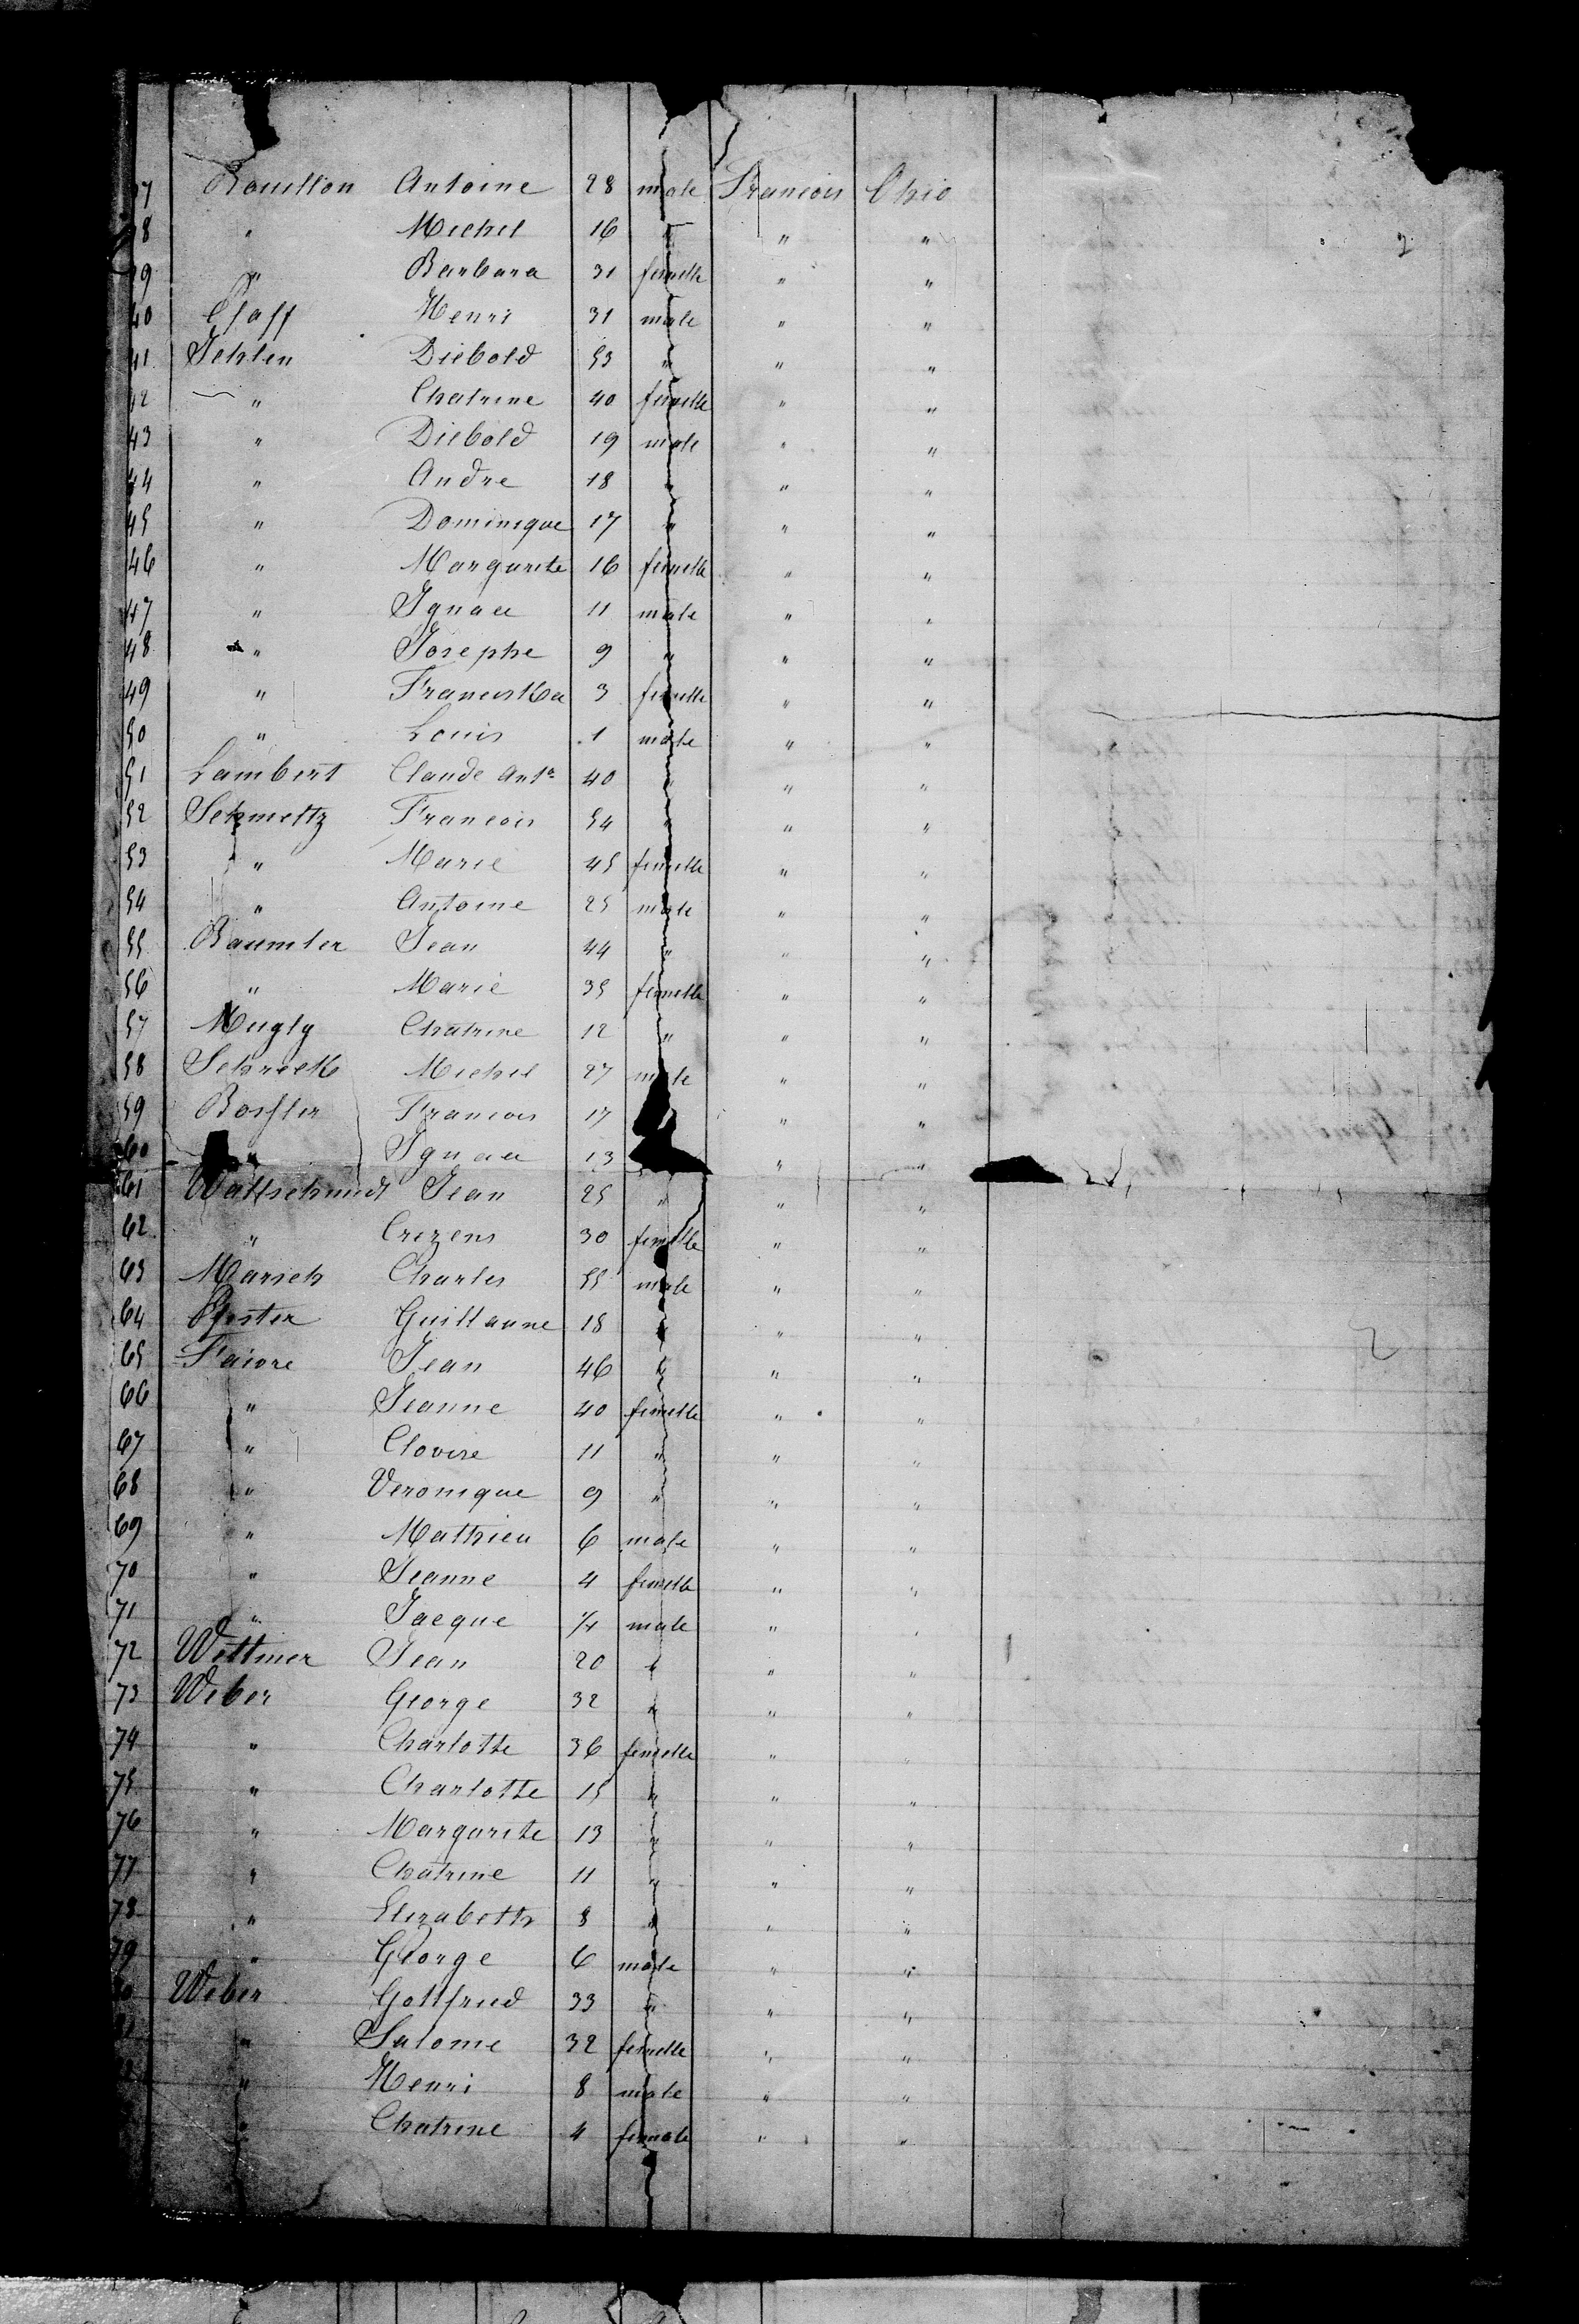 37 Rouillon Antoine 28 male Francois Ohio
38 " Michel 16 " " "
39 " Barbara 31 femelle " "
40 Pfaff Henri 31 male " "
41 Jehlen Diebold 53 " " "
42 " Chatrine 40 femelle " "
43 " Diebold 19 male " "
44 " Andre 18 " " "
45 " Dominique 17 " " "
46 " Margarite 16 femelle " "
47 " Ignace 11 male " "
48 " Josephe 9 " " "
49 " Franciska 3 femelle " "
50 " Louis 1 male " "
51 Lambert Claude Ante 40 " " "
52 Schmeltz Francois 54 " " "
53 " Marie 45 femelle " "
54 " Antoine 25 male " "
55 Baumler Jean 44 " " "
56 " Marie 35 femelle " "
57 Mugly Chatrine 12 " " "
58 Schreck Michel 27 male " "
59 Bosfler Francois 17 " "
60 " Ignace 13 " "
61 Wattschmidt Jean 25 " " "
62 " Crezens 30 femelle " "
63 Marsch Charles 55 male " "
64 Pfister Guillaune 18 " " "
65 Faivre Jean 46 " " "
66 " Jeanne 40 femelle " "
67 " Clovise 11 " " "
68 " Veronique 9 " " "
69 " Mathieu 6 male " "
70 " Jeanne 4 femelle " "
71 " Jacque 1/4 male " "
72 Wittmer Jean 20 " " "
73 Weber George 32 " " "
74 " Charlotte 36 femelle " "
75 " Charlotte 15 " " "
76 " Margarite 13 " " "
77 " Chatrine 11 " " "
78 " Elizabeth 8 " " "
79 " George 6 male " "
Weber Gottfried 33 " " "
" Salome 32 femelle " "
" Henri 8 male " "
" Chatrine 4 female " "